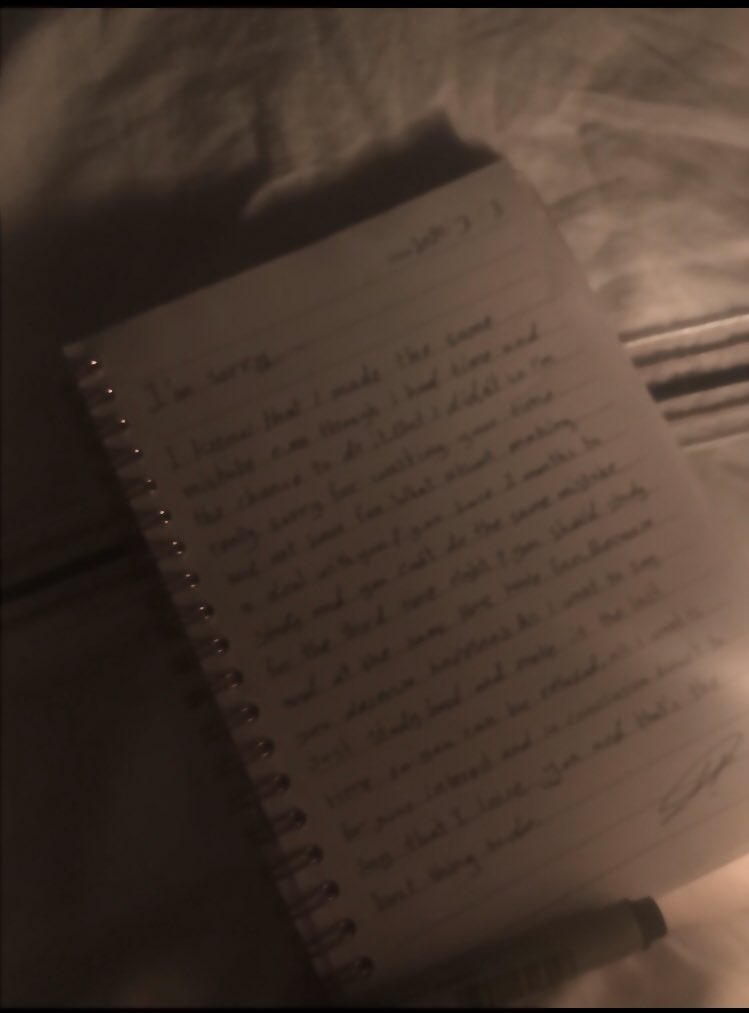 I'm sorry
I know that I made the same
mistake even though i had time and
the chance to do it that I didn't so I'm
really sorry for wasting your time
and not some fun. What about making
a deal with you? you have 2 months to
study and you can't do the same mistake
for the third time right? you should study
and at the same time have fun. Because
you deserve happiness. All I want to say
just study hard and make it the last
time so you can be relaxed all I want is
for your interest and in conclusion
say that I love you and that's the